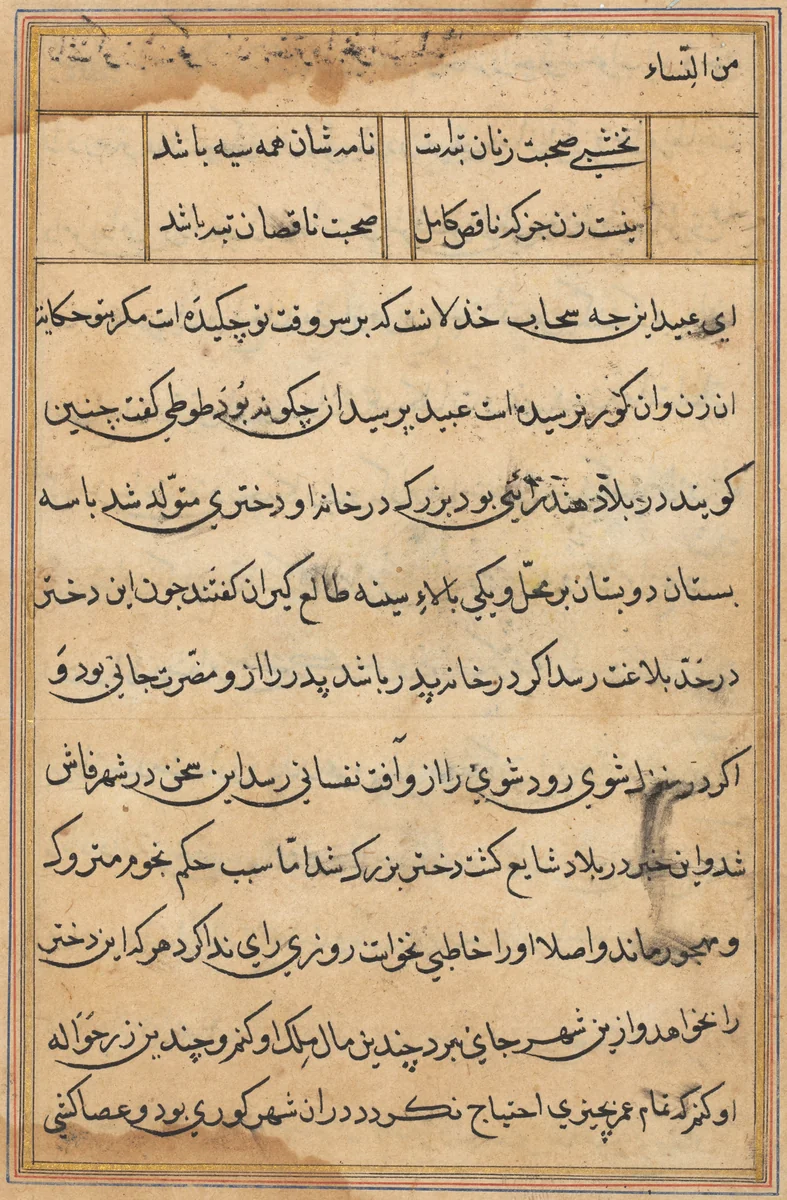 من النّساء
نخشبی صحبت زنان تبداست    نامه شان همه سیه باشد
نیست زن جز که ناقص کامل    صحبت ناقصان تبه باشد
ای عبید این جه سحاب خذلانست که بر سر وقت تو چکیده است مکر بتو حکایت
ان زن وان کور نرسیده است عبید پرسید ان چکونه بُود طوطی کفت چنین
کویند در بلاد هند رائی بود بزرک در خانه او دختری متوّلد شد با سه
بستان دو بستان بر محلّ و یکی بالاءِ سینه طالع کیران کفتند جون این دختر
در حَدّ بلاغت رسد اکر در خانه پدر باشد پدر را از و مضّرت جانی بود وَ
اکر در منزل شوی رود شوئ را از و آفت نفسانی رسد این سخن در شهر فاش
شد و این خبر در بلاد شایع کشت دختر بزرک شد امّا سبب حکم نجوم متروک
و مهجور ماند و اصلا اورا خاطبی نخواست روزی رای ندا کرد هر که این دختر
را بخواهد و ازین شهر جایی ببرد چندین مال مِلک او کنم و چندین زر حَوَاله
او کنم که تمام عمر بچیزی احتیاج نکردد دران شهر کوری بود و عصا کشی